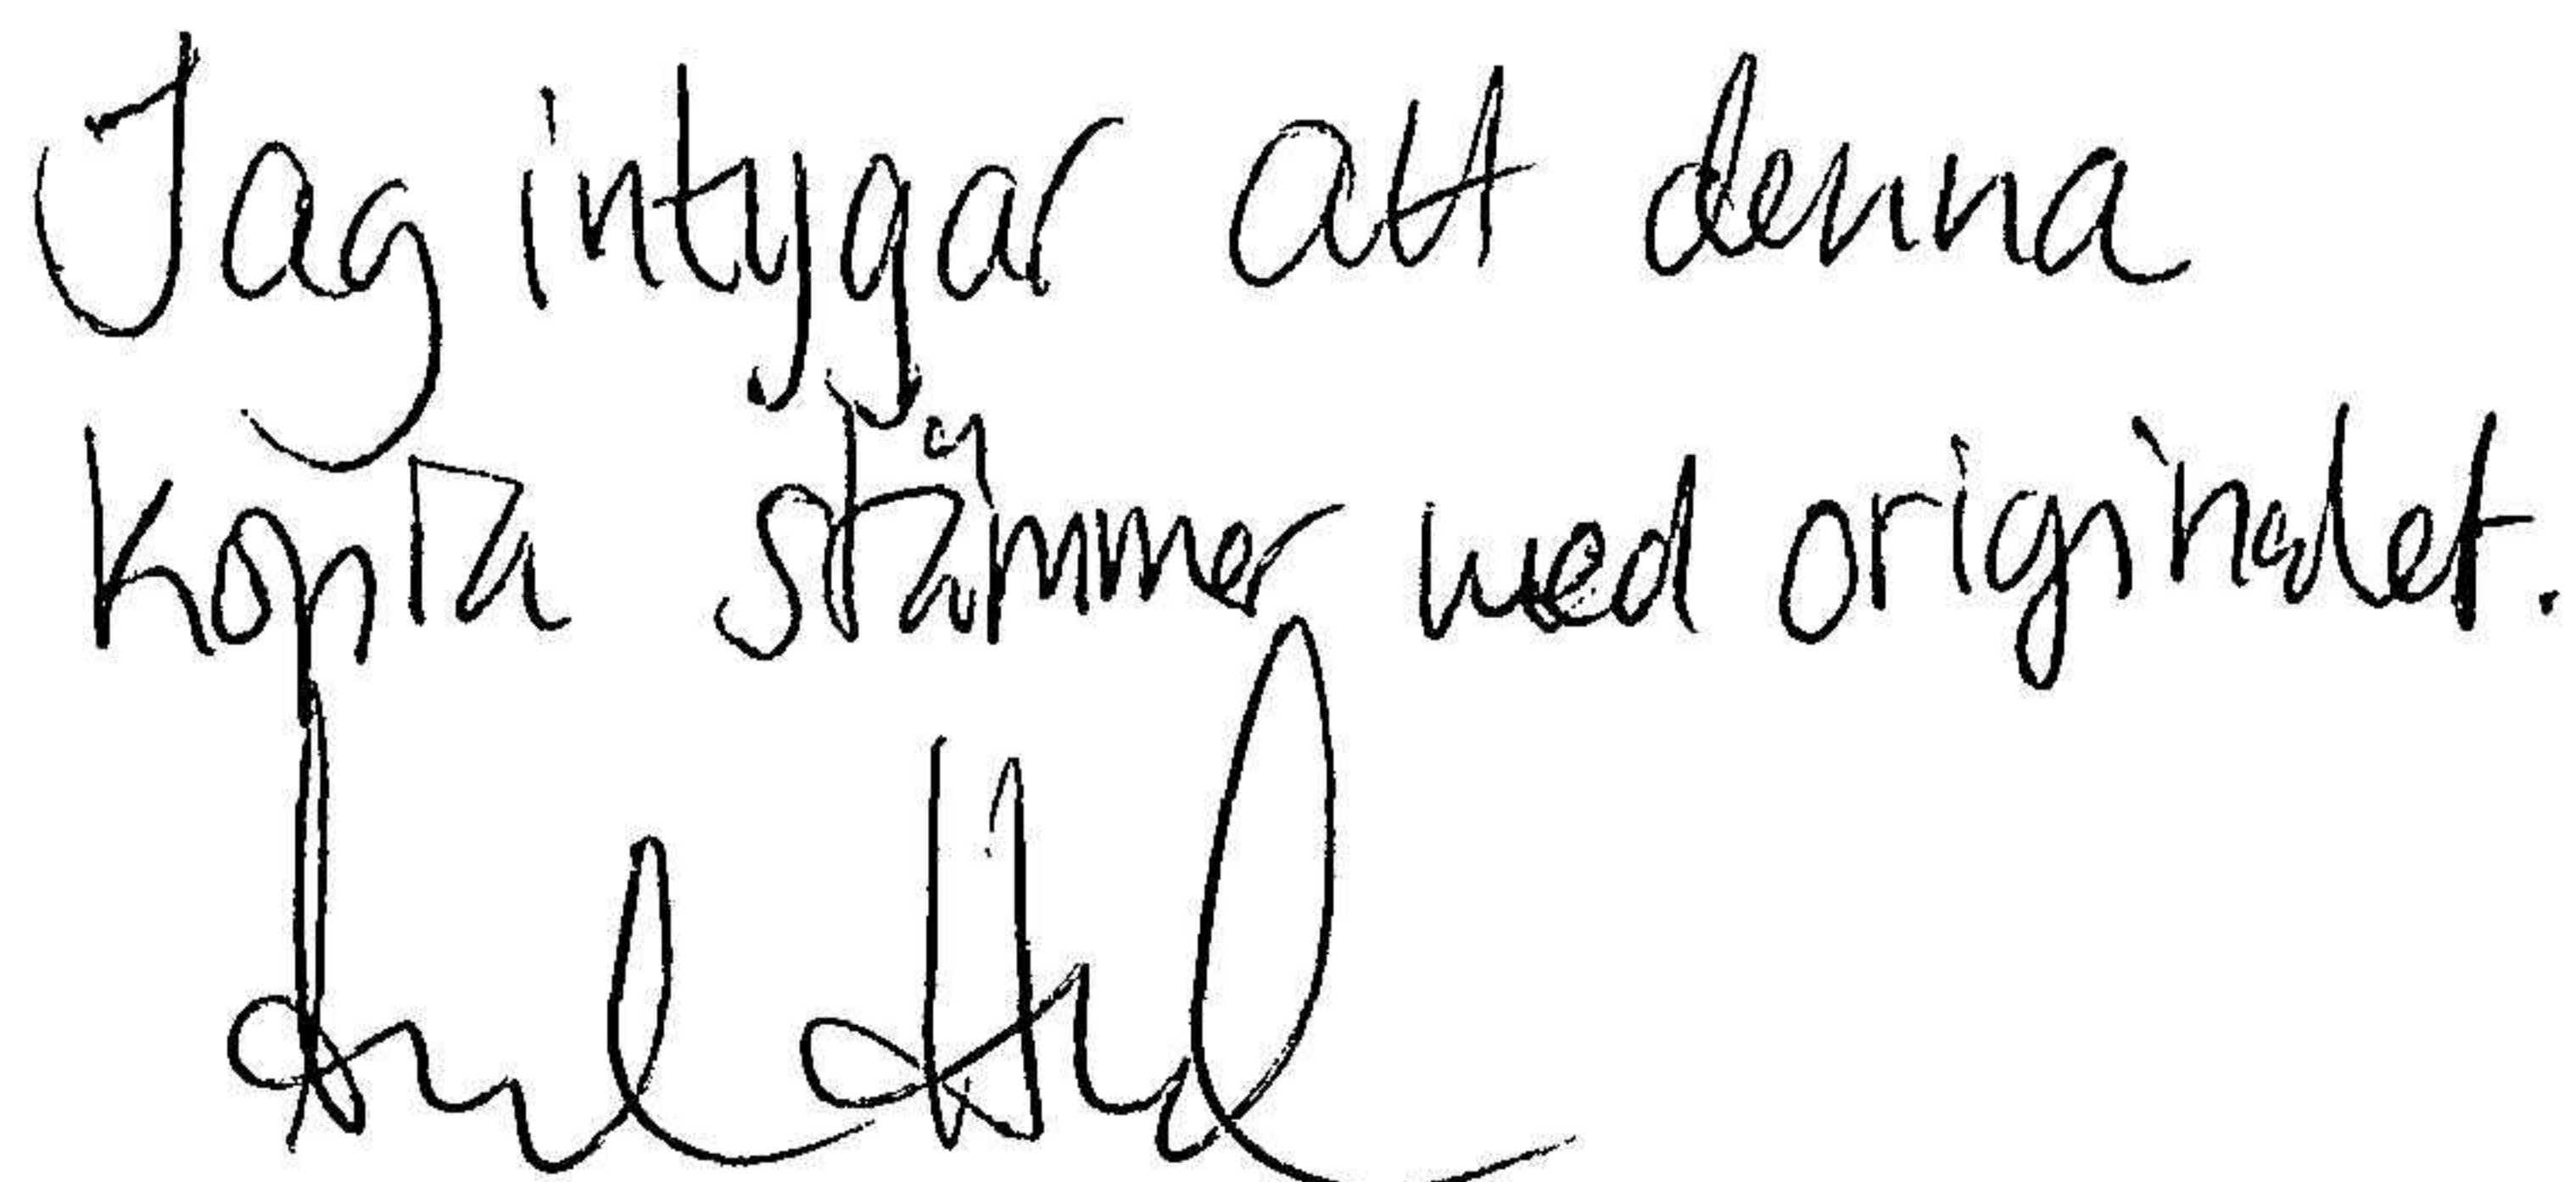 Jag intygar att denna
kopia stämmer med originalet.